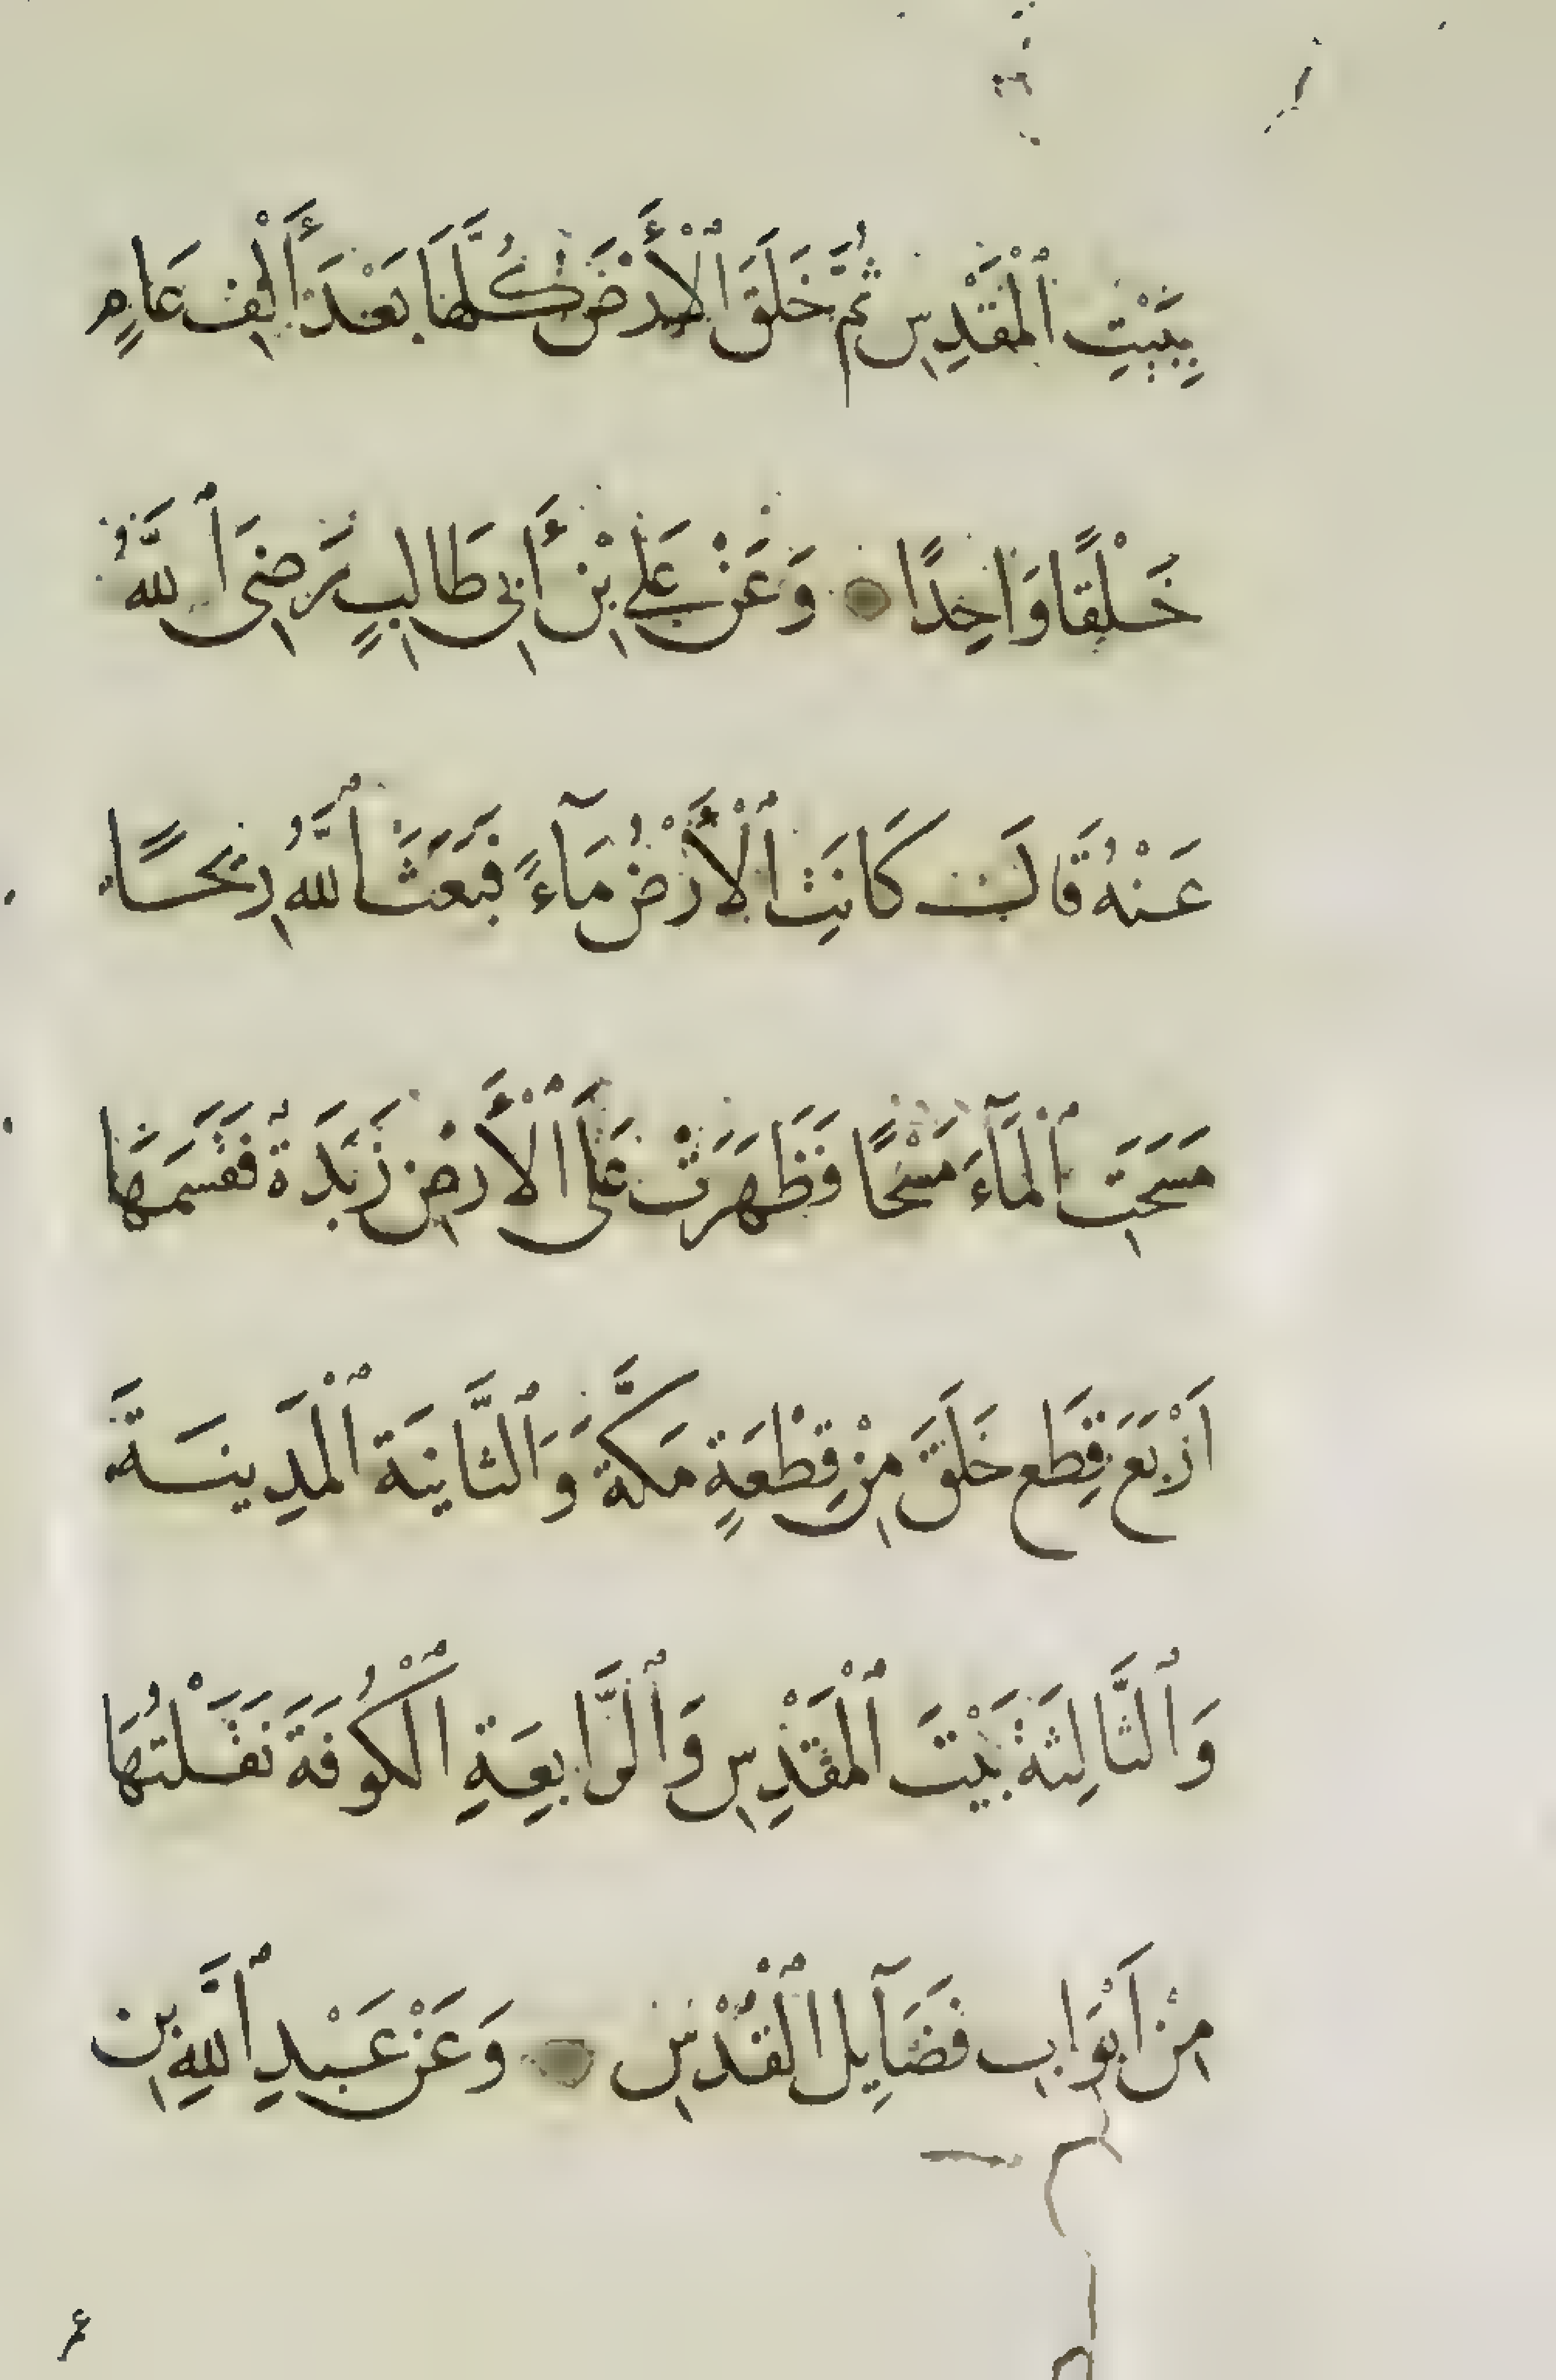 بِبَيْتِ ٱلْمَقْدِسِ ثُمَّ خَلَقَ ٱلْأَرْضَ كُلَّهَا بَعْدَ أَلْفِ عَامٍ
خَلْقًا وَاحِدًا وَعَنْ عَلِي بْنِ أَبِي طَالِبٍ رَضِىَ ٱللَّهُ
عَنْهُ قَالَ كَانَتِ ٱلْأَرْضُ مَآءً فَبَعَثَ ٱللَّهُ رِيحًا
مَسَحَتِ ٱلْمَآءَ مَسْحًا فَظَهَرَتْ عَلَى ٱلْأَرْضِ زَبَدَةٌ فَقَسَمَهَا
اَرْبَعَ قِطَع خَلَقَ مِنْ قِطْعَةٍ مَكَّةَ وَٱلثَّانِيَةَ ٱلْمَدِينَةَ
وَٱلثَّالِثَةَ بَيْتَ ٱلْمَقْدِسِ وَٱلرَّابِعَةِ ٱلْكُوفَةَ نَقَلْتُهَا
مِنْ اَبْوَابِ فَضَآيِلِ ٱلْقُدْسِ وَعَنْ عَبْدِ ٱللَّهِ بْنِ
عمر